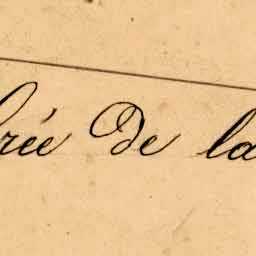 rée De la